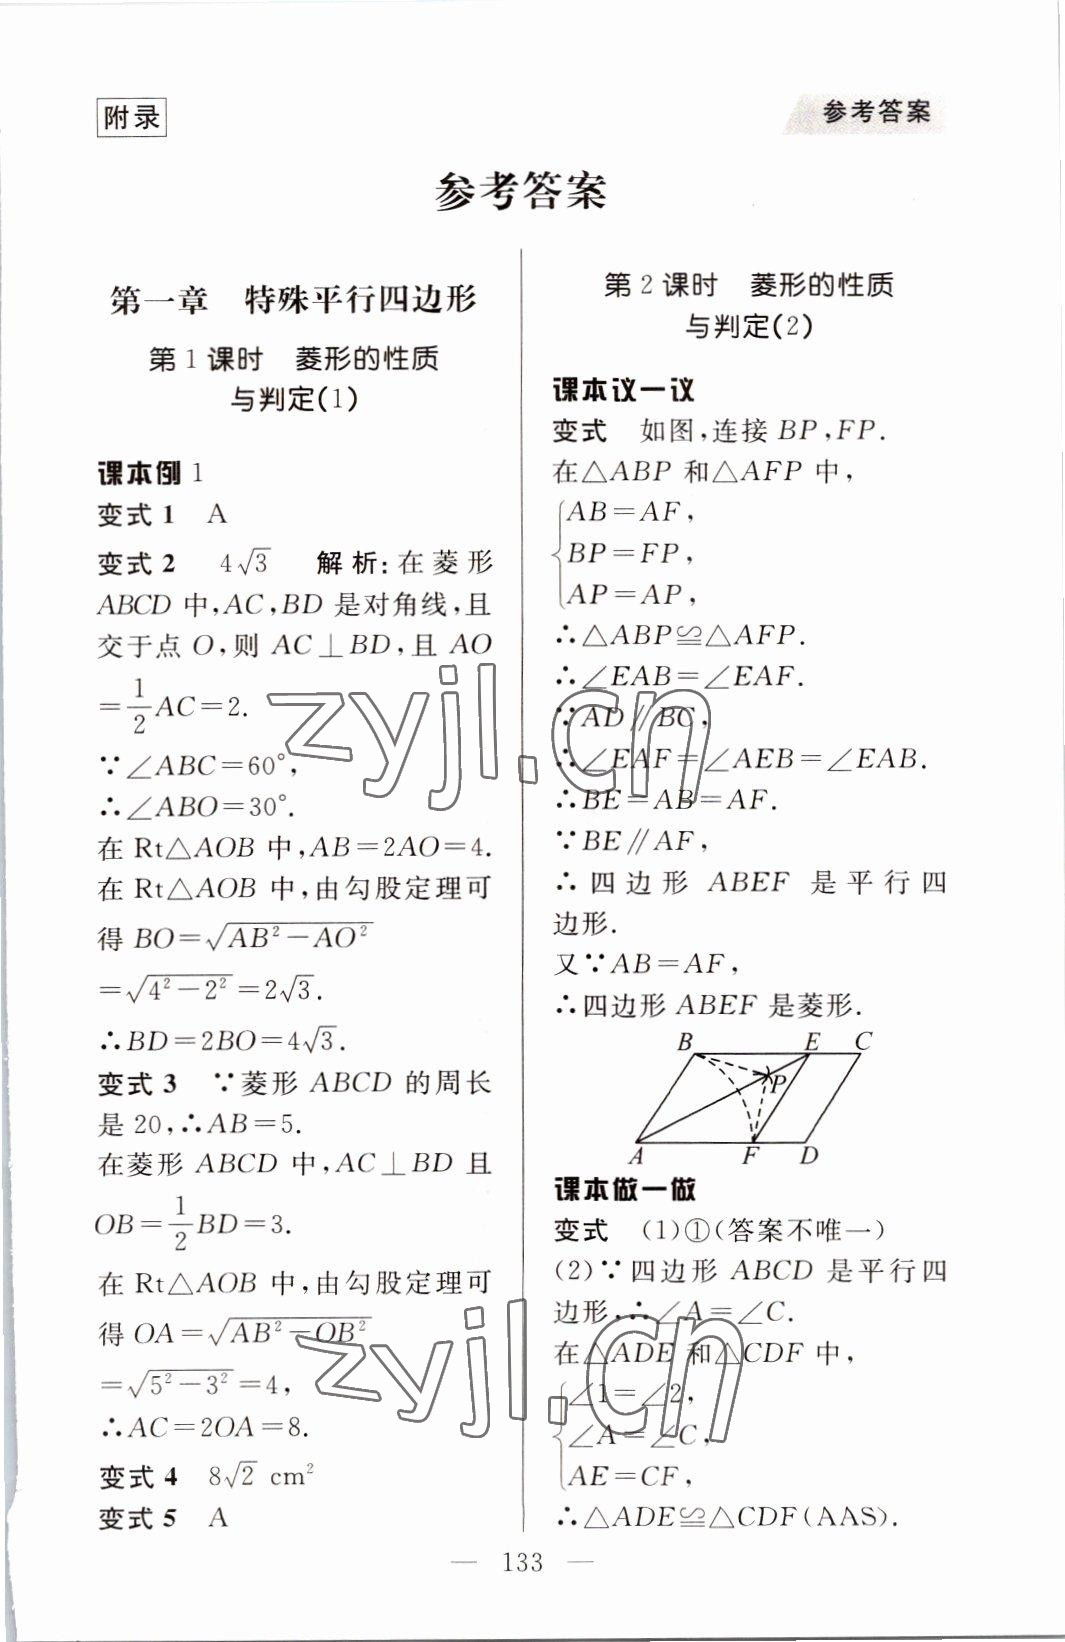 附录
参考答案
参考答案
第一章　特殊平行四边形
第1课时　菱形的性质
与判定(1)
课本例1
变式1　A
变式2　4√3　解析:在菱形
ABCD中,AC,BD是对角线,且
交于点O,则AC⊥BD,且AO
=1/2AC=2.
∵∠ABC=60°,
∴∠ABO=30°.
在Rt△AOB中,AB=2AO=4.
在Rt△AOB中,由勾股定理可
得BO=√(AB²-AO²)
=√(4²-2²)=2√3.
∴BD=2BO=4√3.
变式3　∵菱形ABCD的周长
是20,∴AB=5.
在菱形ABCD中,AC⊥BD且
OB=1/2BD=3.
在Rt△AOB中,由勾股定理可
得OA=√(AB²-OB²)
=√(5²-3²)=4,
∴AC=2OA=8.
变式4　8√2 cm²
变式5　A
第2课时　菱形的性质
与判定(2)
课本议一议
变式　如图,连接BP,FP.
在△ABP和△AFP中,
AB=AF,
BP=FP,
AP=AP,
∴△ABP≌△AFP.
∴∠EAB=∠EAF.
∵AD∥BC,
∴∠EAF=∠AEB=∠EAB.
∴BE=AB=AF.
∵BE∥AF,
∴四边形ABEF是平行四
边形.
又∵AB=AF,
∴四边形ABEF是菱形.
B E C
P
A F D
课本做一做
变式　(1)①(答案不唯一)
(2)∵四边形ABCD是平行四
边形,∴∠A=∠C.
在△ADE和△CDF中,
∠1=∠2,
∠A=∠C,
AE=CF,
∴△ADE≌△CDF(AAS).
— 133 —
zyjl.cn
zyjl.cn